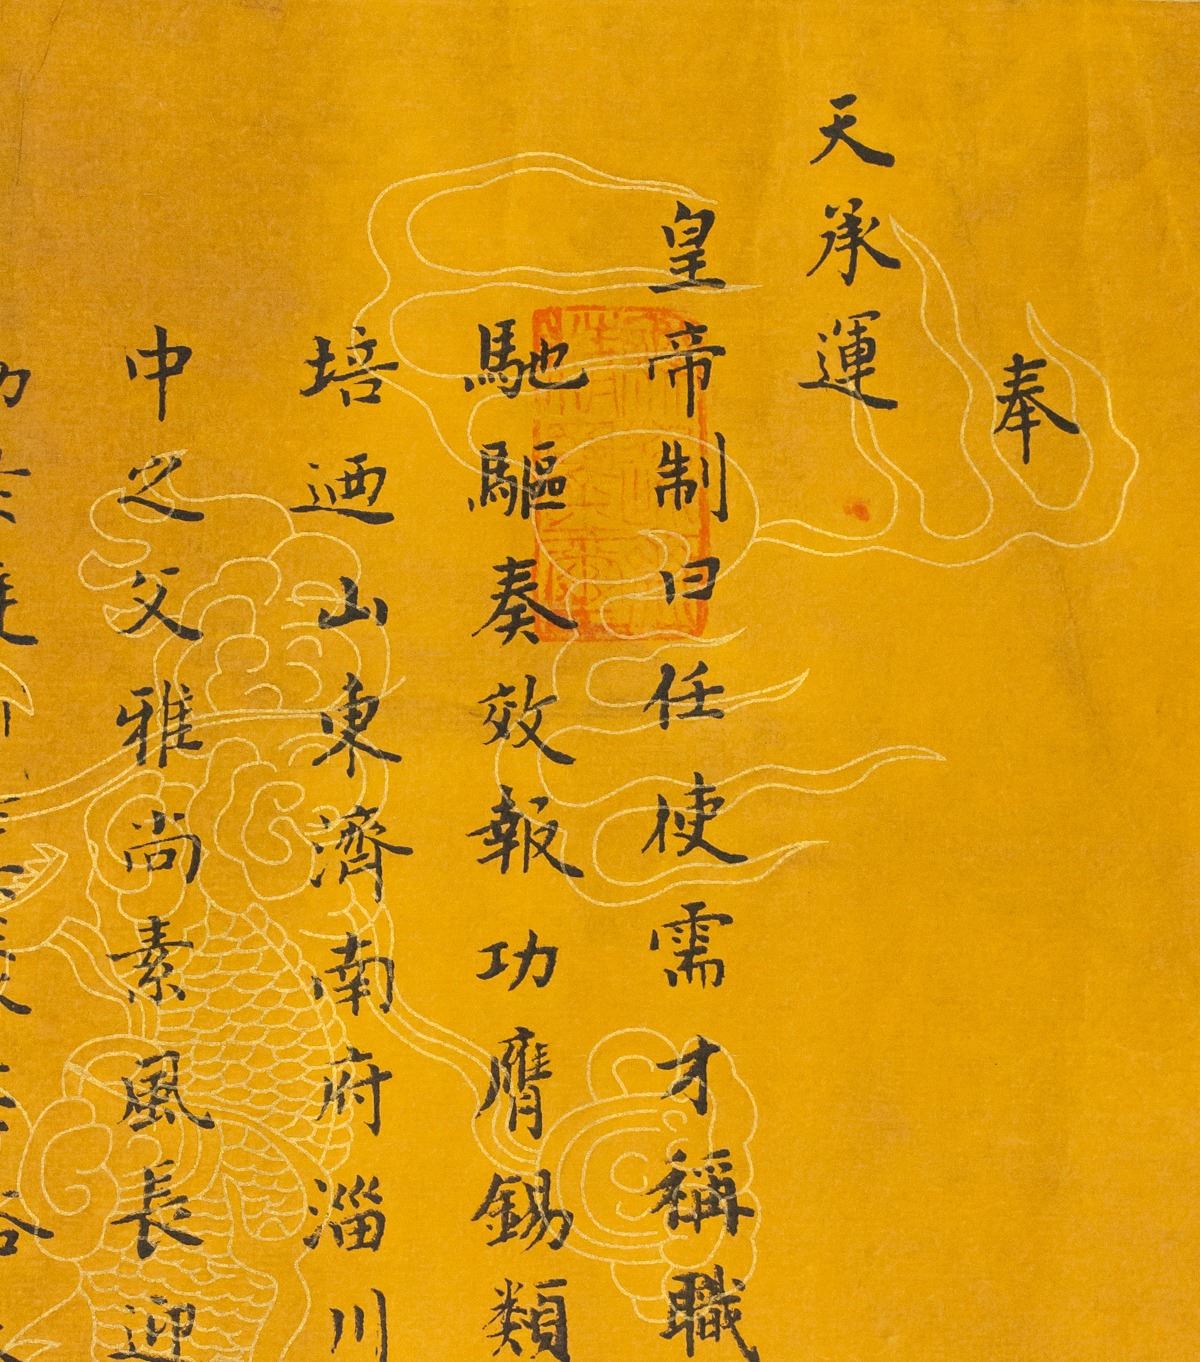 奉
天承運
皇帝制曰任使需才稱職
馳驅奏效報功膺錫類
培迺山東濟南府淄川
中之父雅尚素風長迎